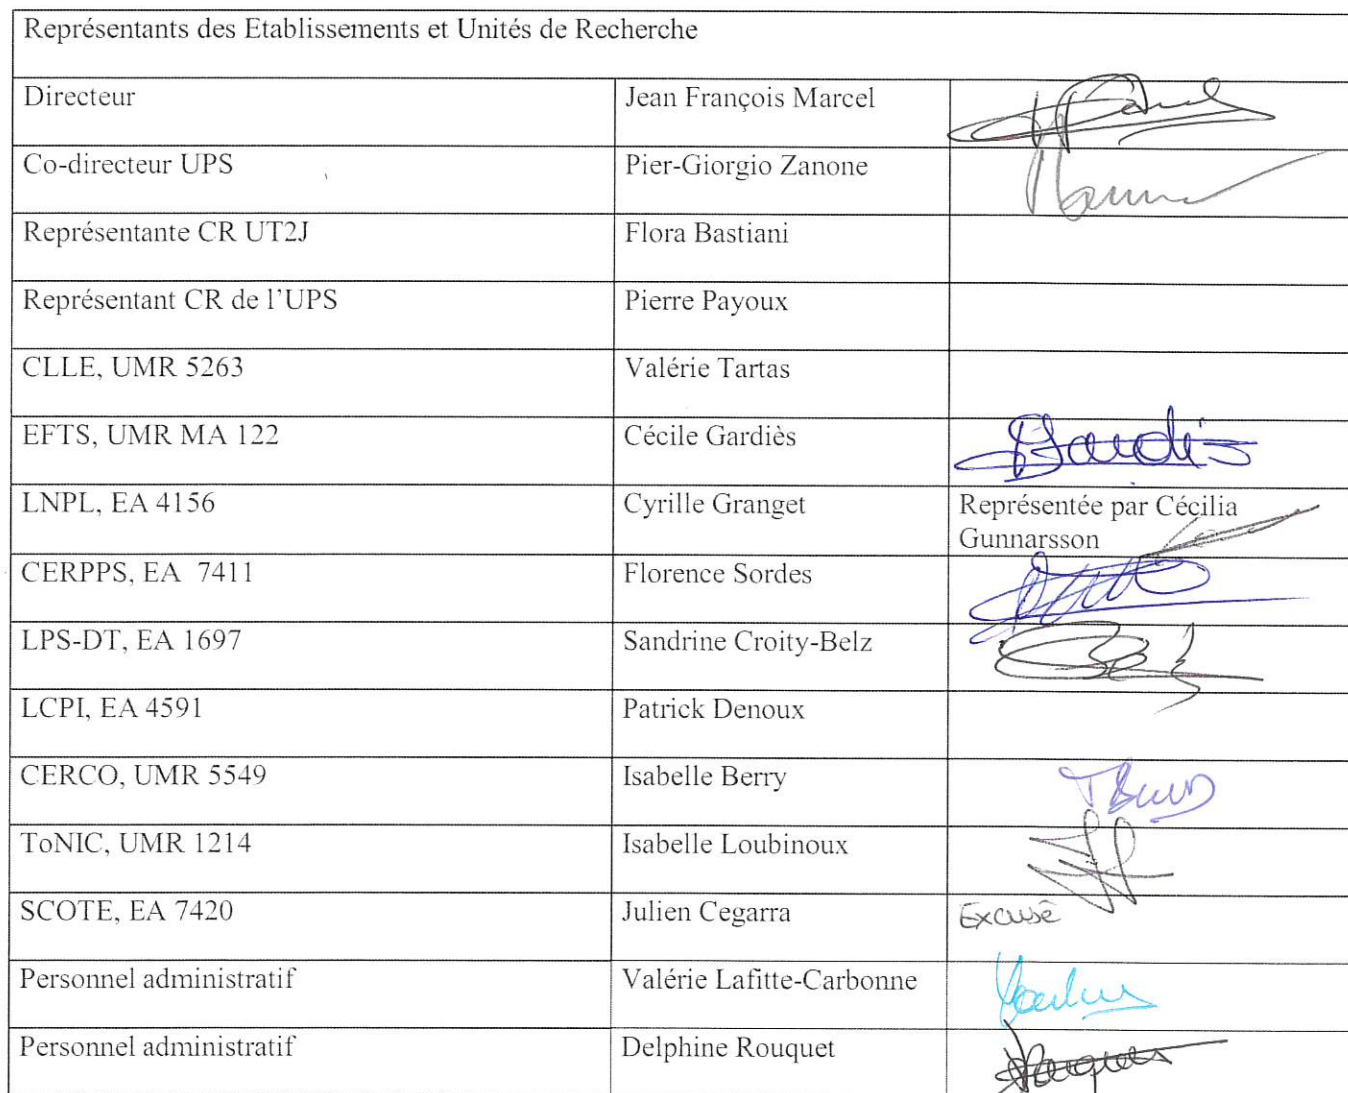 Représentants des Etablissements et Unités de Recherche
Directeur Jean François Marcel
Co-directeur UPS Pier-Giorgio Zanone
Représentante CR UT2J Flora Bastiani
Représentant CR de l'UPS Pierre Payoux
CLLE, UMR 5263 Valérie Tartas
EFTS, UMR MA 122 Cécile Gardiès
LNPL, EA 4156 Cyrille Granget Représentée par Cécilia
Gunnarsson
CERPPS, EA 7411 Florence Sordes
LPS-DT, EA 1697 Sandrine Croity-Belz
LCPI, EA 4591 Patrick Denoux
CERCO, UMR 5549 Isabelle Berry
ToNIC, UMR 1214 Isabelle Loubinoux
SCOTE, EA 7420 Julien Cegarra Excusé
Personnel administratif Valérie Lafitte-Carbonne
Personnel administratif Delphine Rouquet